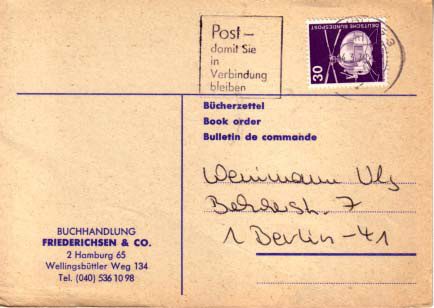 Post –
damit Sie
in
Verbindung
bleiben
DEUTSCHE BUNDESPOST
30
Bücherzettel
Book order
Bulletin de commande
1 Berlin-41
BUCHHANDLUNG
FRIEDERICHSEN & CO.
2 Hamburg 65
Wellingsbüttler Weg 134
Tel. (040) 536 10 98